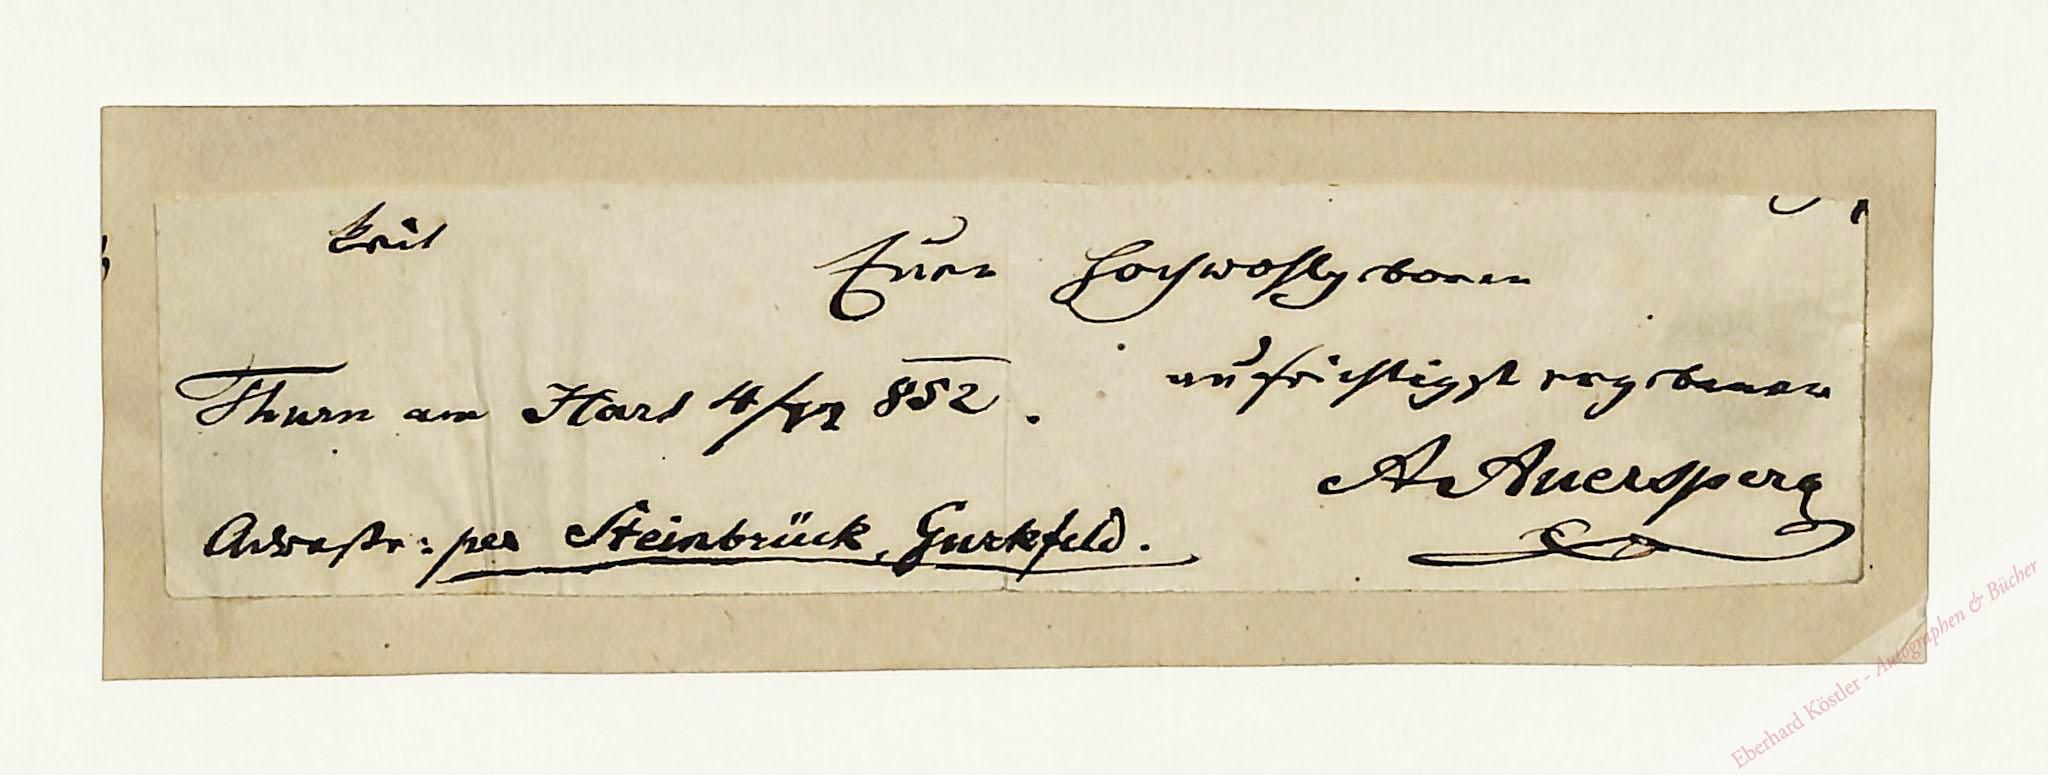 keit
Euer Hochwohlgeboren
Thurn am Hart 4/12 852.
aufrichtigst ergebener
A Auersperg
Adresse: per Steinbrück, Gurkfeld.
Eberhard Köstler - Autographen & Bücher